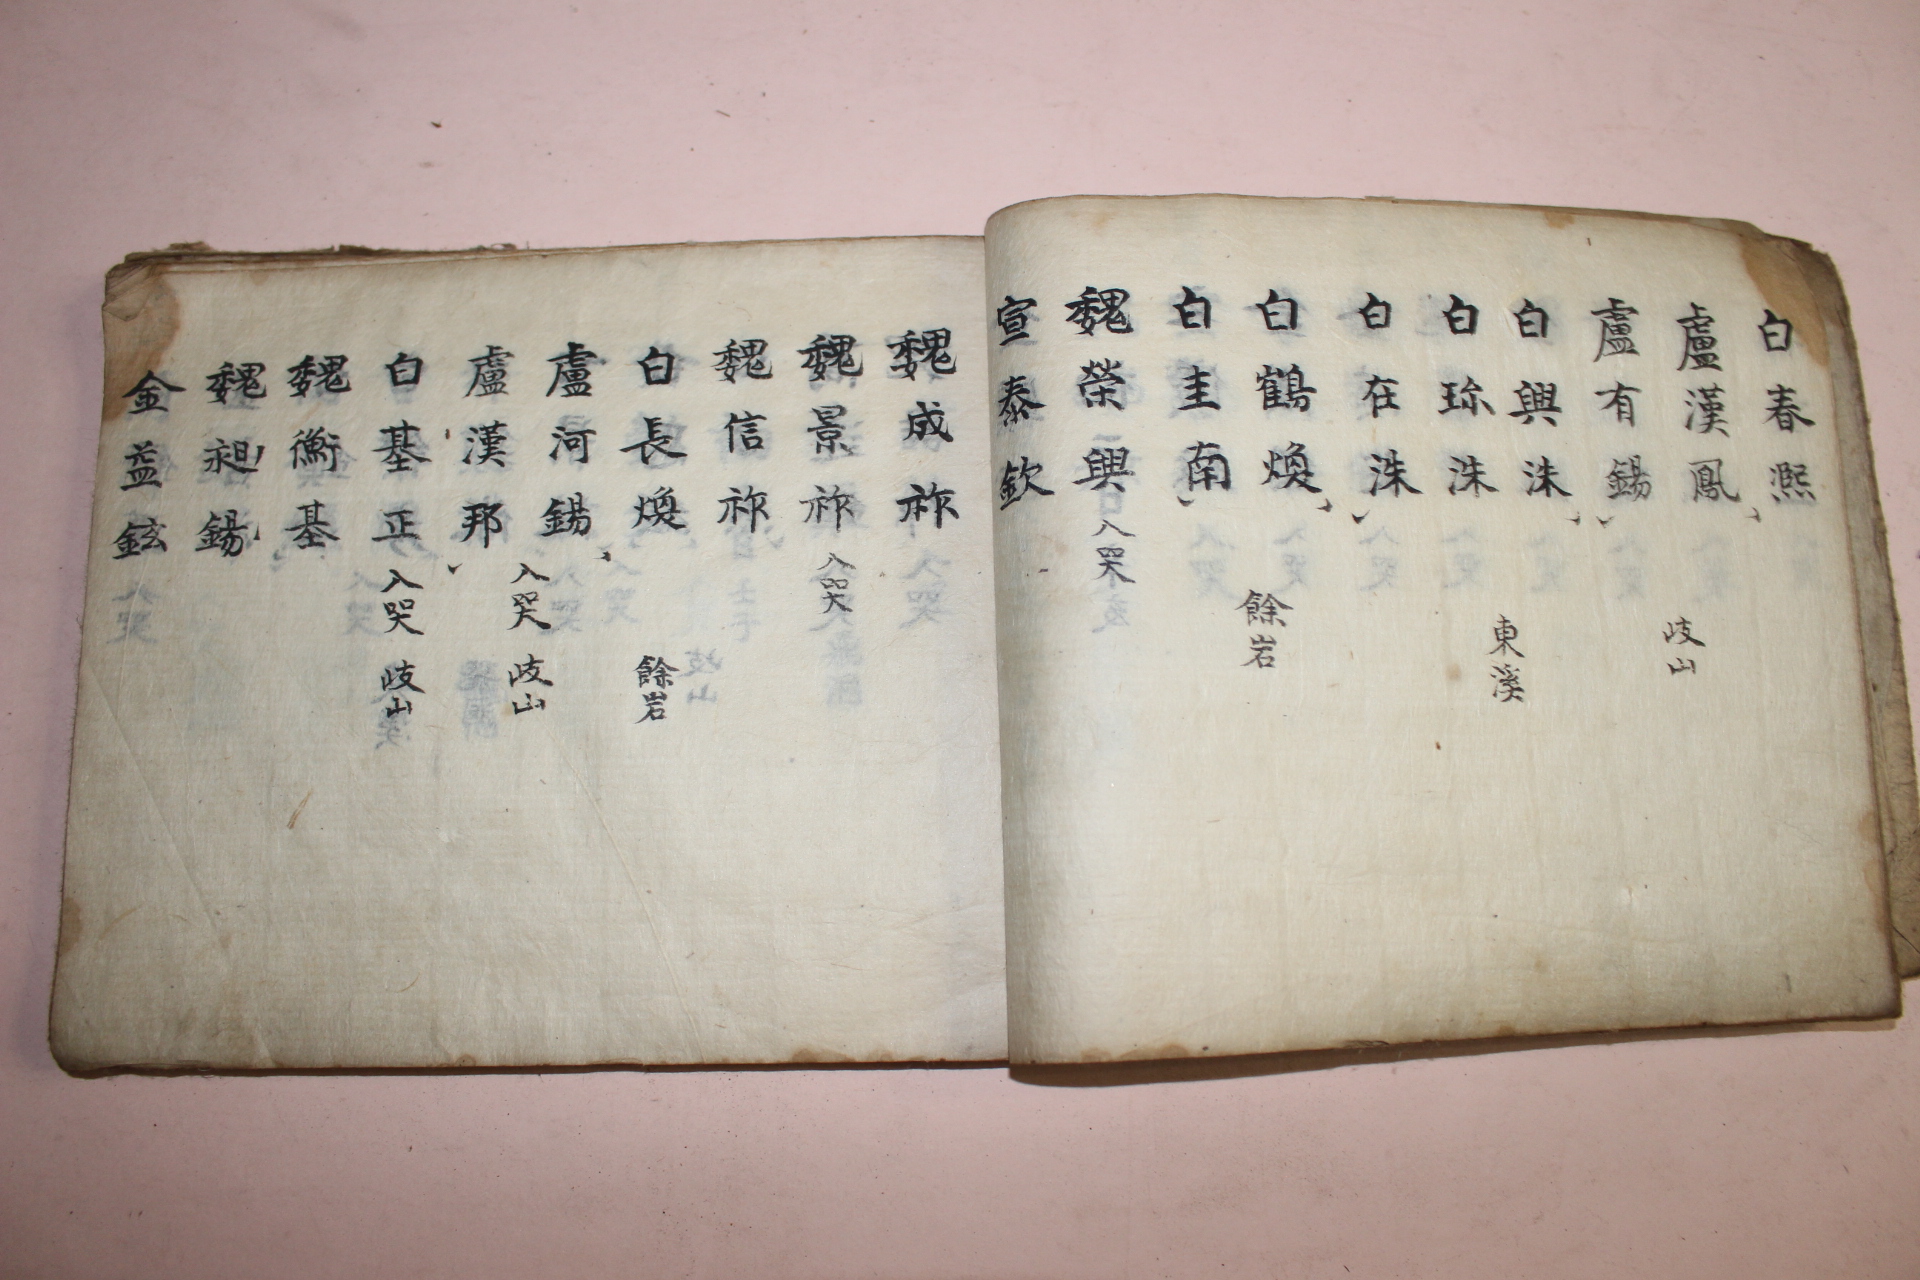 白春熙
盧漢鳳
岐山
盧有錫
白興洙
東溪
白珎洙
白在洙
白鶴煥
餘岩
白圭南
魏榮興 入哭
宣泰欽
魏成祚
魏景祚 入哭
魏信祚
白長煥 餘岩
盧河錫
入哭 岐山
盧漢邦
白基正 入哭 岐山
魏衡基
魏昶錫
金益鉉